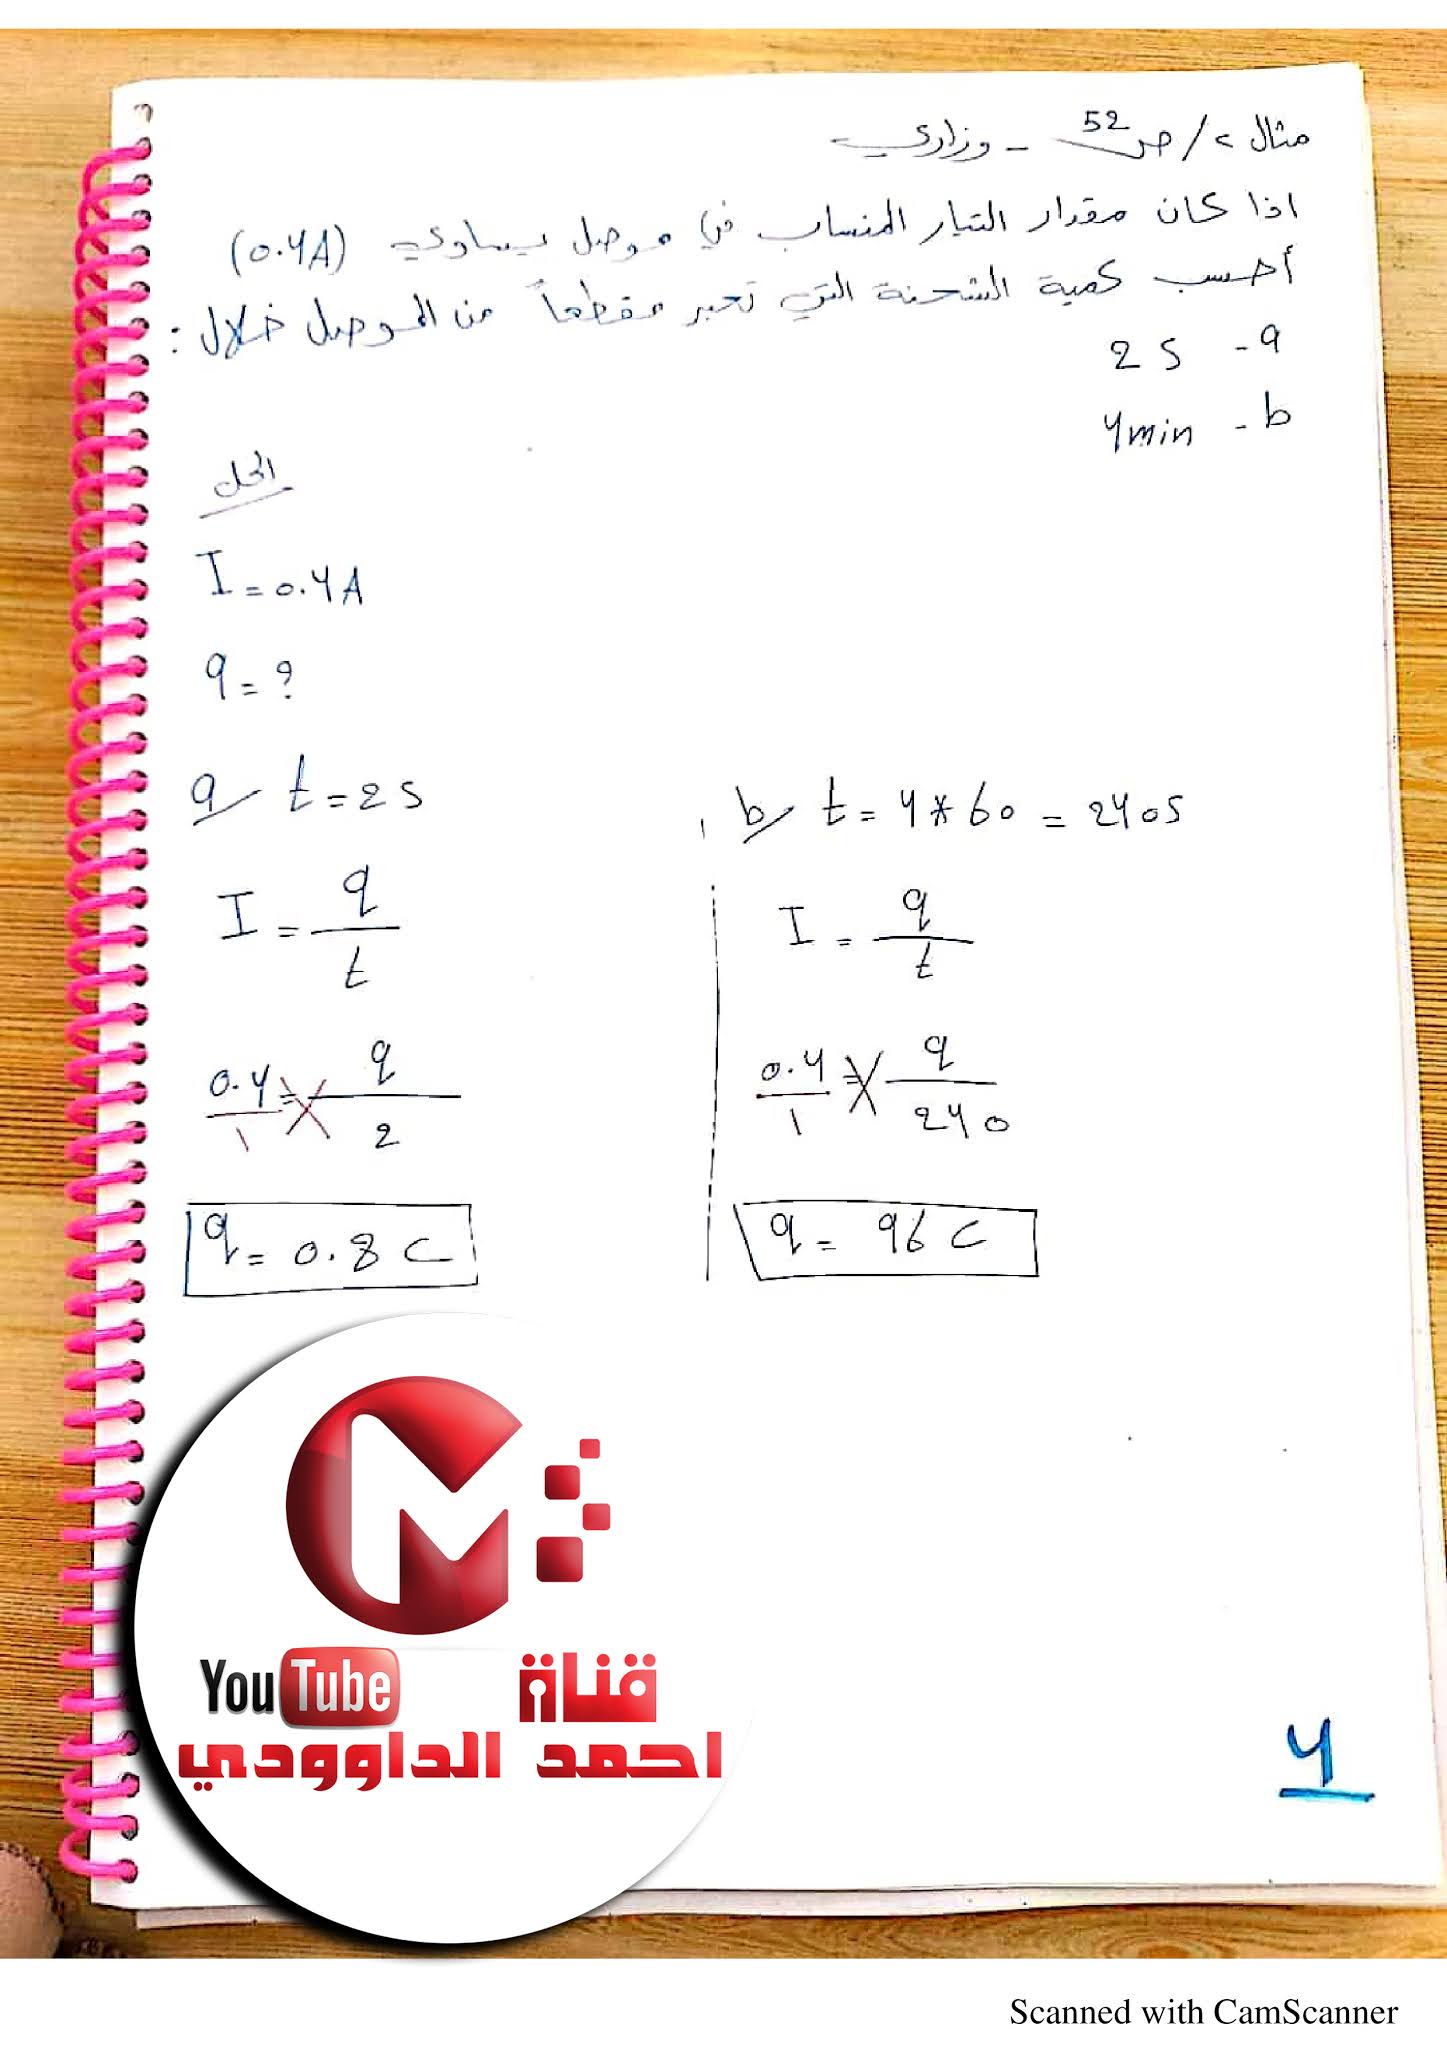 مثال ٢/ ص 52 - وزاري
اذا كان مقدار التيار المنساب في موصل يساوي (0.4A)
أحسب كمية الشحنة التي تعبر مقطعاً من الموصل خلال :
2 s - a
4min - b
الحل
I = 0.4A
q = ?
a/ t = 2 s
I = q / t
0.4 / 1 = q / 2
q = 0.8 C
b/ t = 4 * 60 = 240 s
I = q / t
0.4 / 1 = q / 240
q = 96 C
قناة YouTube
احمد الداوودي
4
Scanned with CamScanner